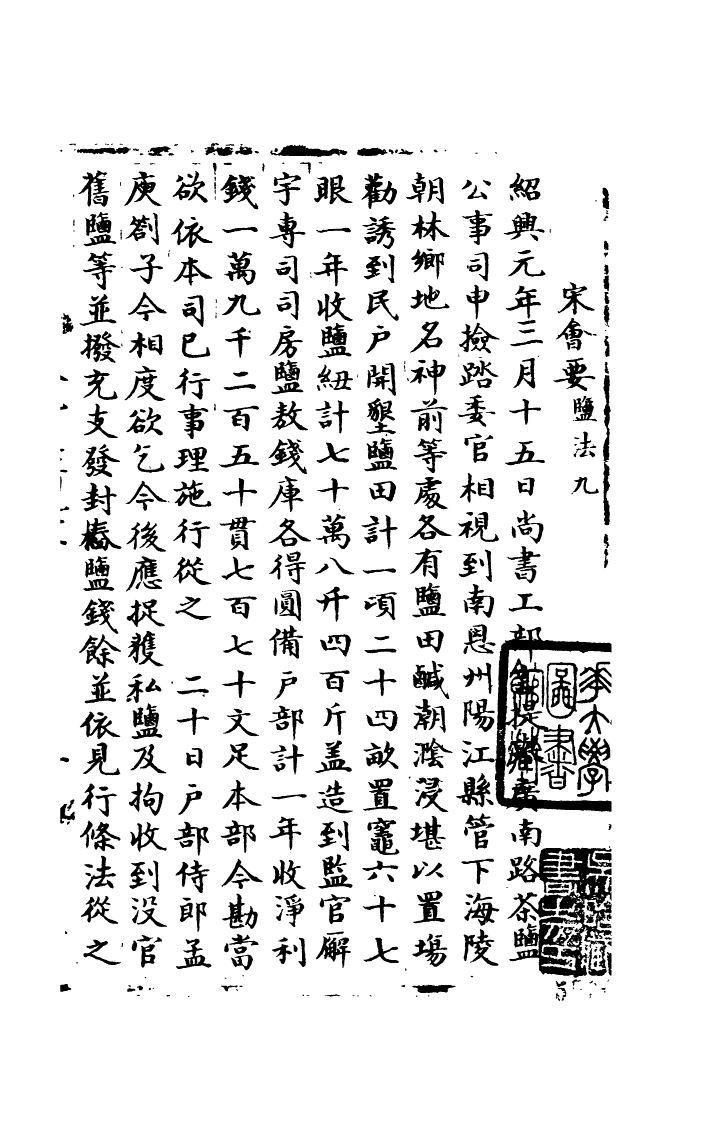 宋會要鹽法九
紹興元年三月十五日尚書工部言提舉廣南路茶鹽
公事司申撿踏委官相視到南恩州陽江縣管下海陵
朝林鄉地名神前等處各有鹽田鹹潮滲浸堪以置場
勸誘到民户開墾鹽田計一頃二十四畝置竈六十七
眼一年收鹽紐計七十萬八千四百斤盖造到監官廨
宇專司司房鹽敖錢庫各得圓備户部計一年收淨利
錢一萬九千二百五十貫七百七十文足本部今勘當
欲依本司已行事理施行從之 二十日户部侍郎孟
庾劄子今相度欲乞今後應捉獲私鹽及拘收到沒官
舊鹽等並撥充支發封樁鹽錢餘並依見行條法從之